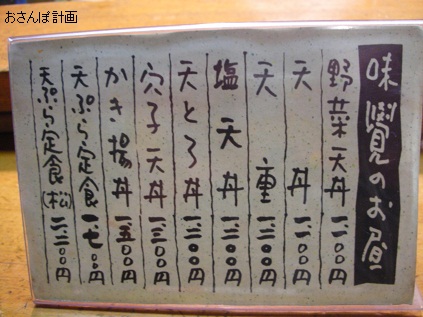 おさんぽ計画
味覺のお昼
野菜天丼 一、一〇〇円
天丼 一、一〇〇円
天重 一、三〇〇円
塩天丼 一、二〇〇円
天とろ丼 一、三〇〇円
穴子天丼 一、三〇〇円
かき揚丼 一、五〇〇円
天ぷら定食 一、七〇〇円
天ぷら定食(松) 二、二〇〇円